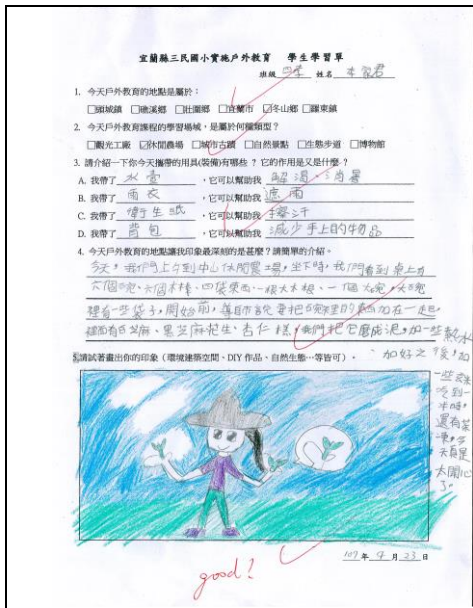 宜蘭縣三民國小實施戶外教育 學生學習單
班級 四年 姓名 李
1. 今天戶外教育的地點是屬於：
□頭城鎮 □礁溪鄉 □壯圍鄉 □宜蘭市 ☑冬山鄉 □羅東鎮
2. 今天戶外教育課程的學習場域，是屬於何種類型？
□觀光工廠 ☑休閒農場 □城市古蹟 □自然景點 □生態步道 □博物館
3. 請介紹一下你今天攜帶的用具(裝備)有哪些？它的作用是又是什麼？
A. 我帶了 水壺 ，它可以幫助我 解渴、消暑
B. 我帶了 雨衣 ，它可以幫助我 遮雨
C. 我帶了 衛生紙 ，它可以幫助我 擦汗
D. 我帶了 背包 ，它可以幫助我 減少手上的物品
4. 今天戶外教育的地點讓我印象最深刻的是甚麼？請簡單的介紹。
今天，我們上午到中山休閒農場，坐下時，我們看到桌上有
六個碗、六個木棒、四袋東西、一根大木棍、一個大碗，大碗
裡有一些袋子，開始前，導師說要把碗裡的東西加在一起，
裡面有白芝麻、黑芝麻、花生、杏仁 ，我們把它磨成泥，加一些熱水
加好之後，加
一些
吃到一
半時，
還有茶
凍，今
天真是
太開心
了。
5.請試著畫出你的印象（環境建築空間、DIY 作品、自然生態…等皆可）。
107 年 4 月 23 日
good!